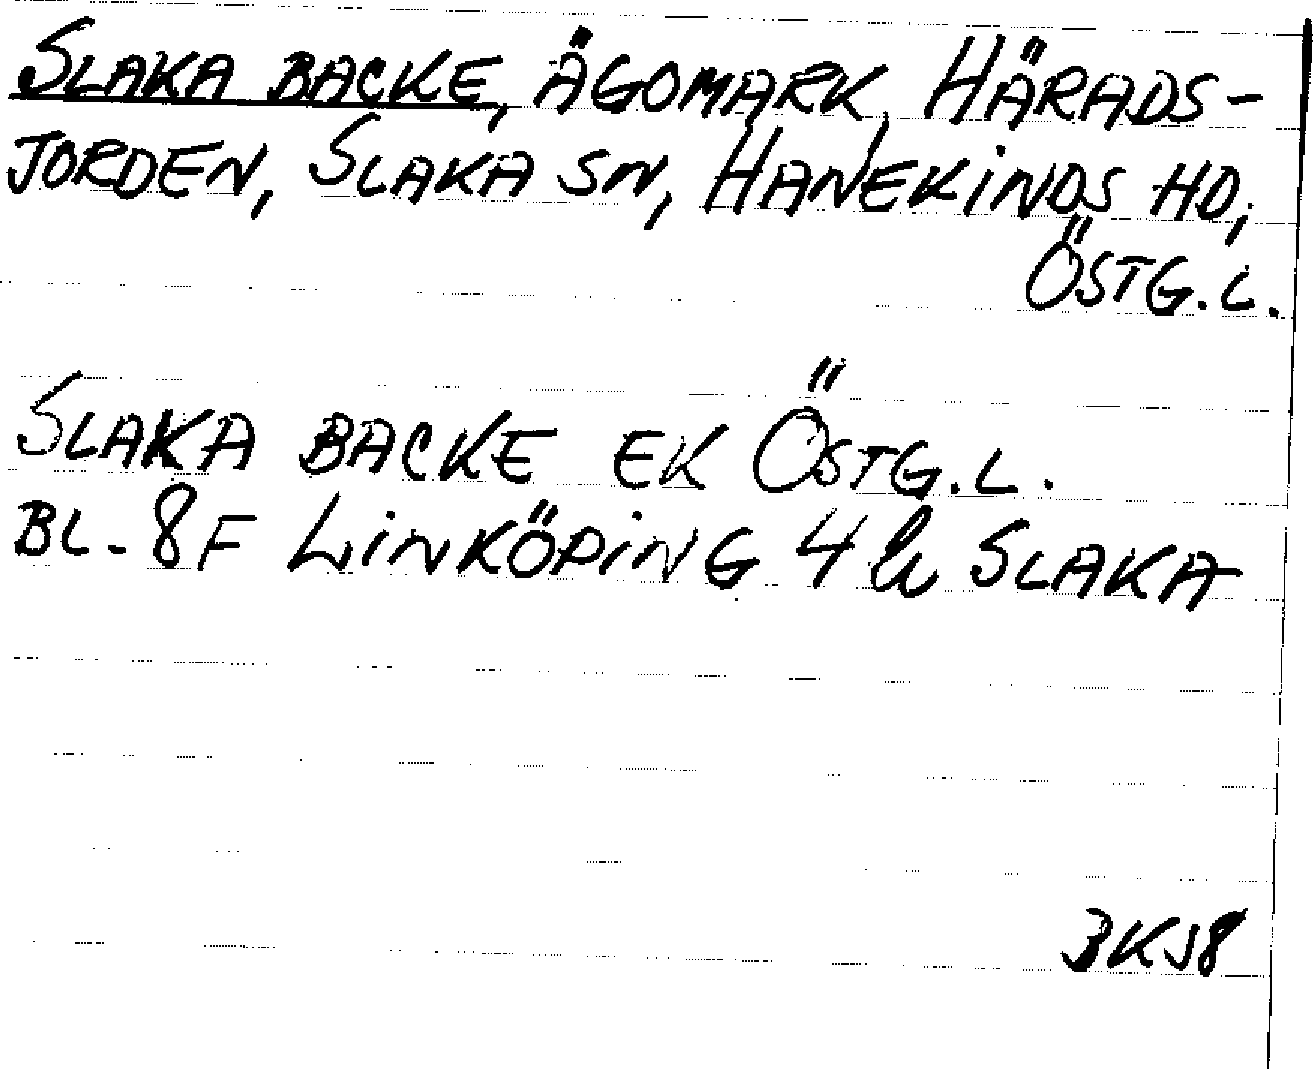 SLAKA BACKE, ÄGOMARK, HÄRADS-
JORDEN, SLAKA SN, HANEKINDS HD,
ÖSTG.L.
SLAKA BACKE EK ÖSTG.L.
BL. 8F LINKÖPING 4 h SLAKA